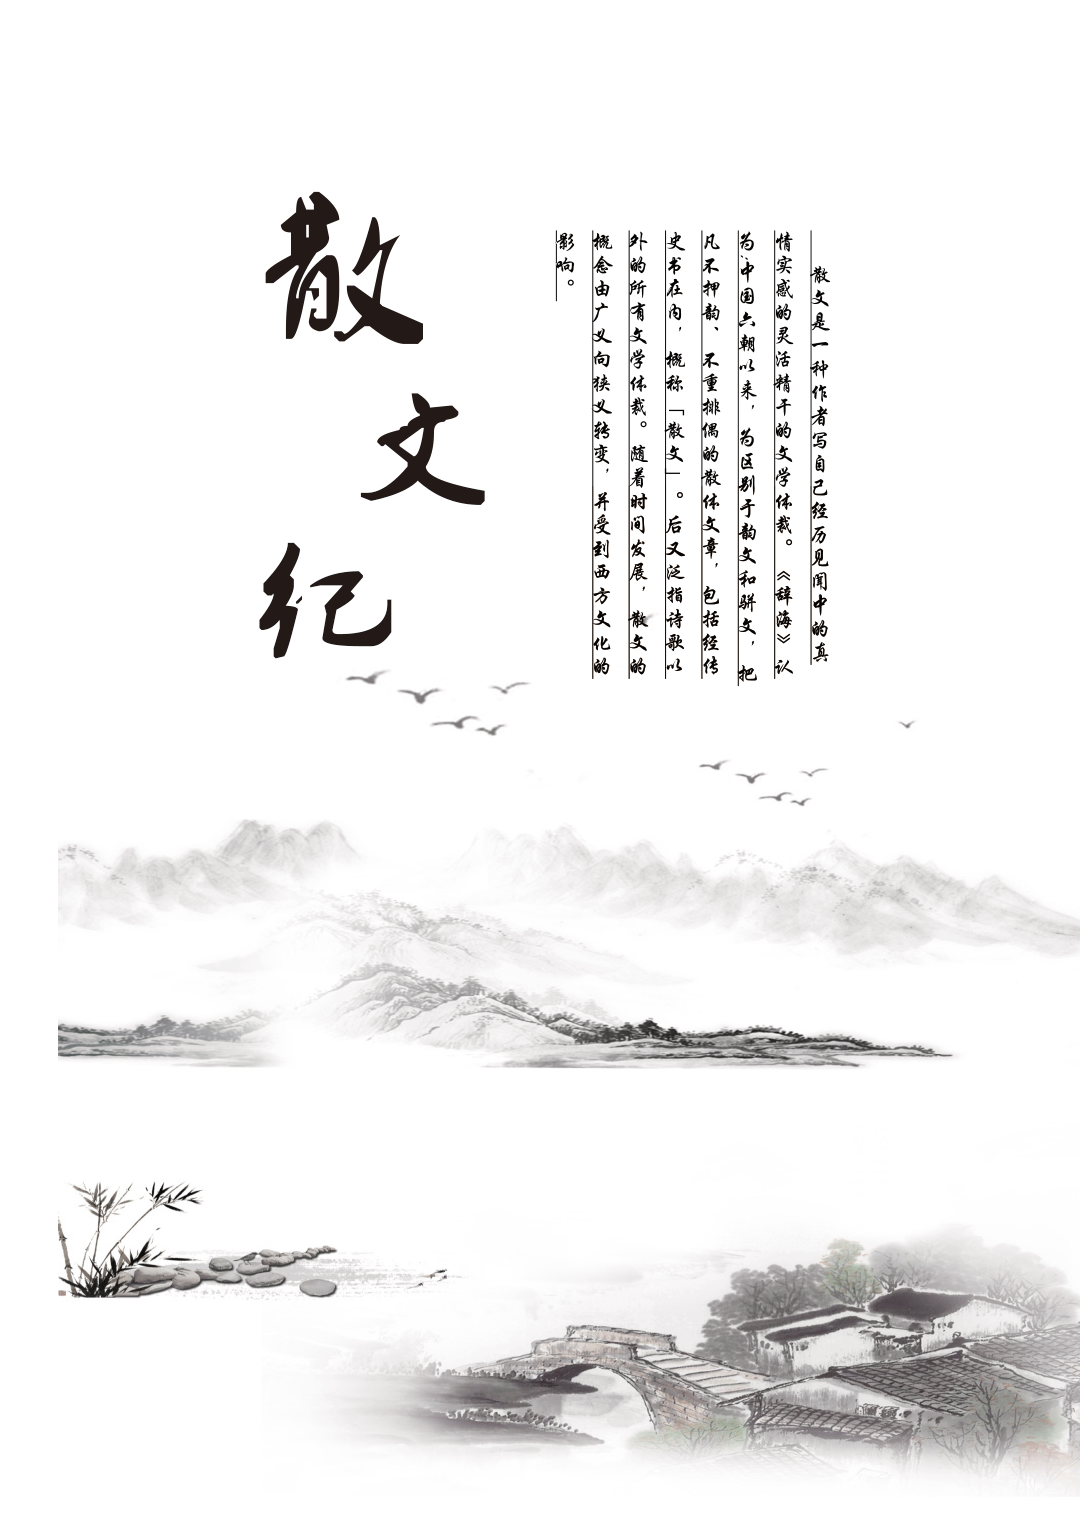 散文纪
散文是一种作者写自己经历见闻中的真
情实感的灵活精干的文学体裁。《辞海》认
为：中国六朝以来，为区别于韵文和骈文，把
凡不押韵、不重排偶的散体文章，包括经传
史书在内，概称「散文」。后又泛指诗歌以
外的所有文学体裁。随着时间发展，散文的
概念由广义向狭义转变，并受到西方文化的
影响。